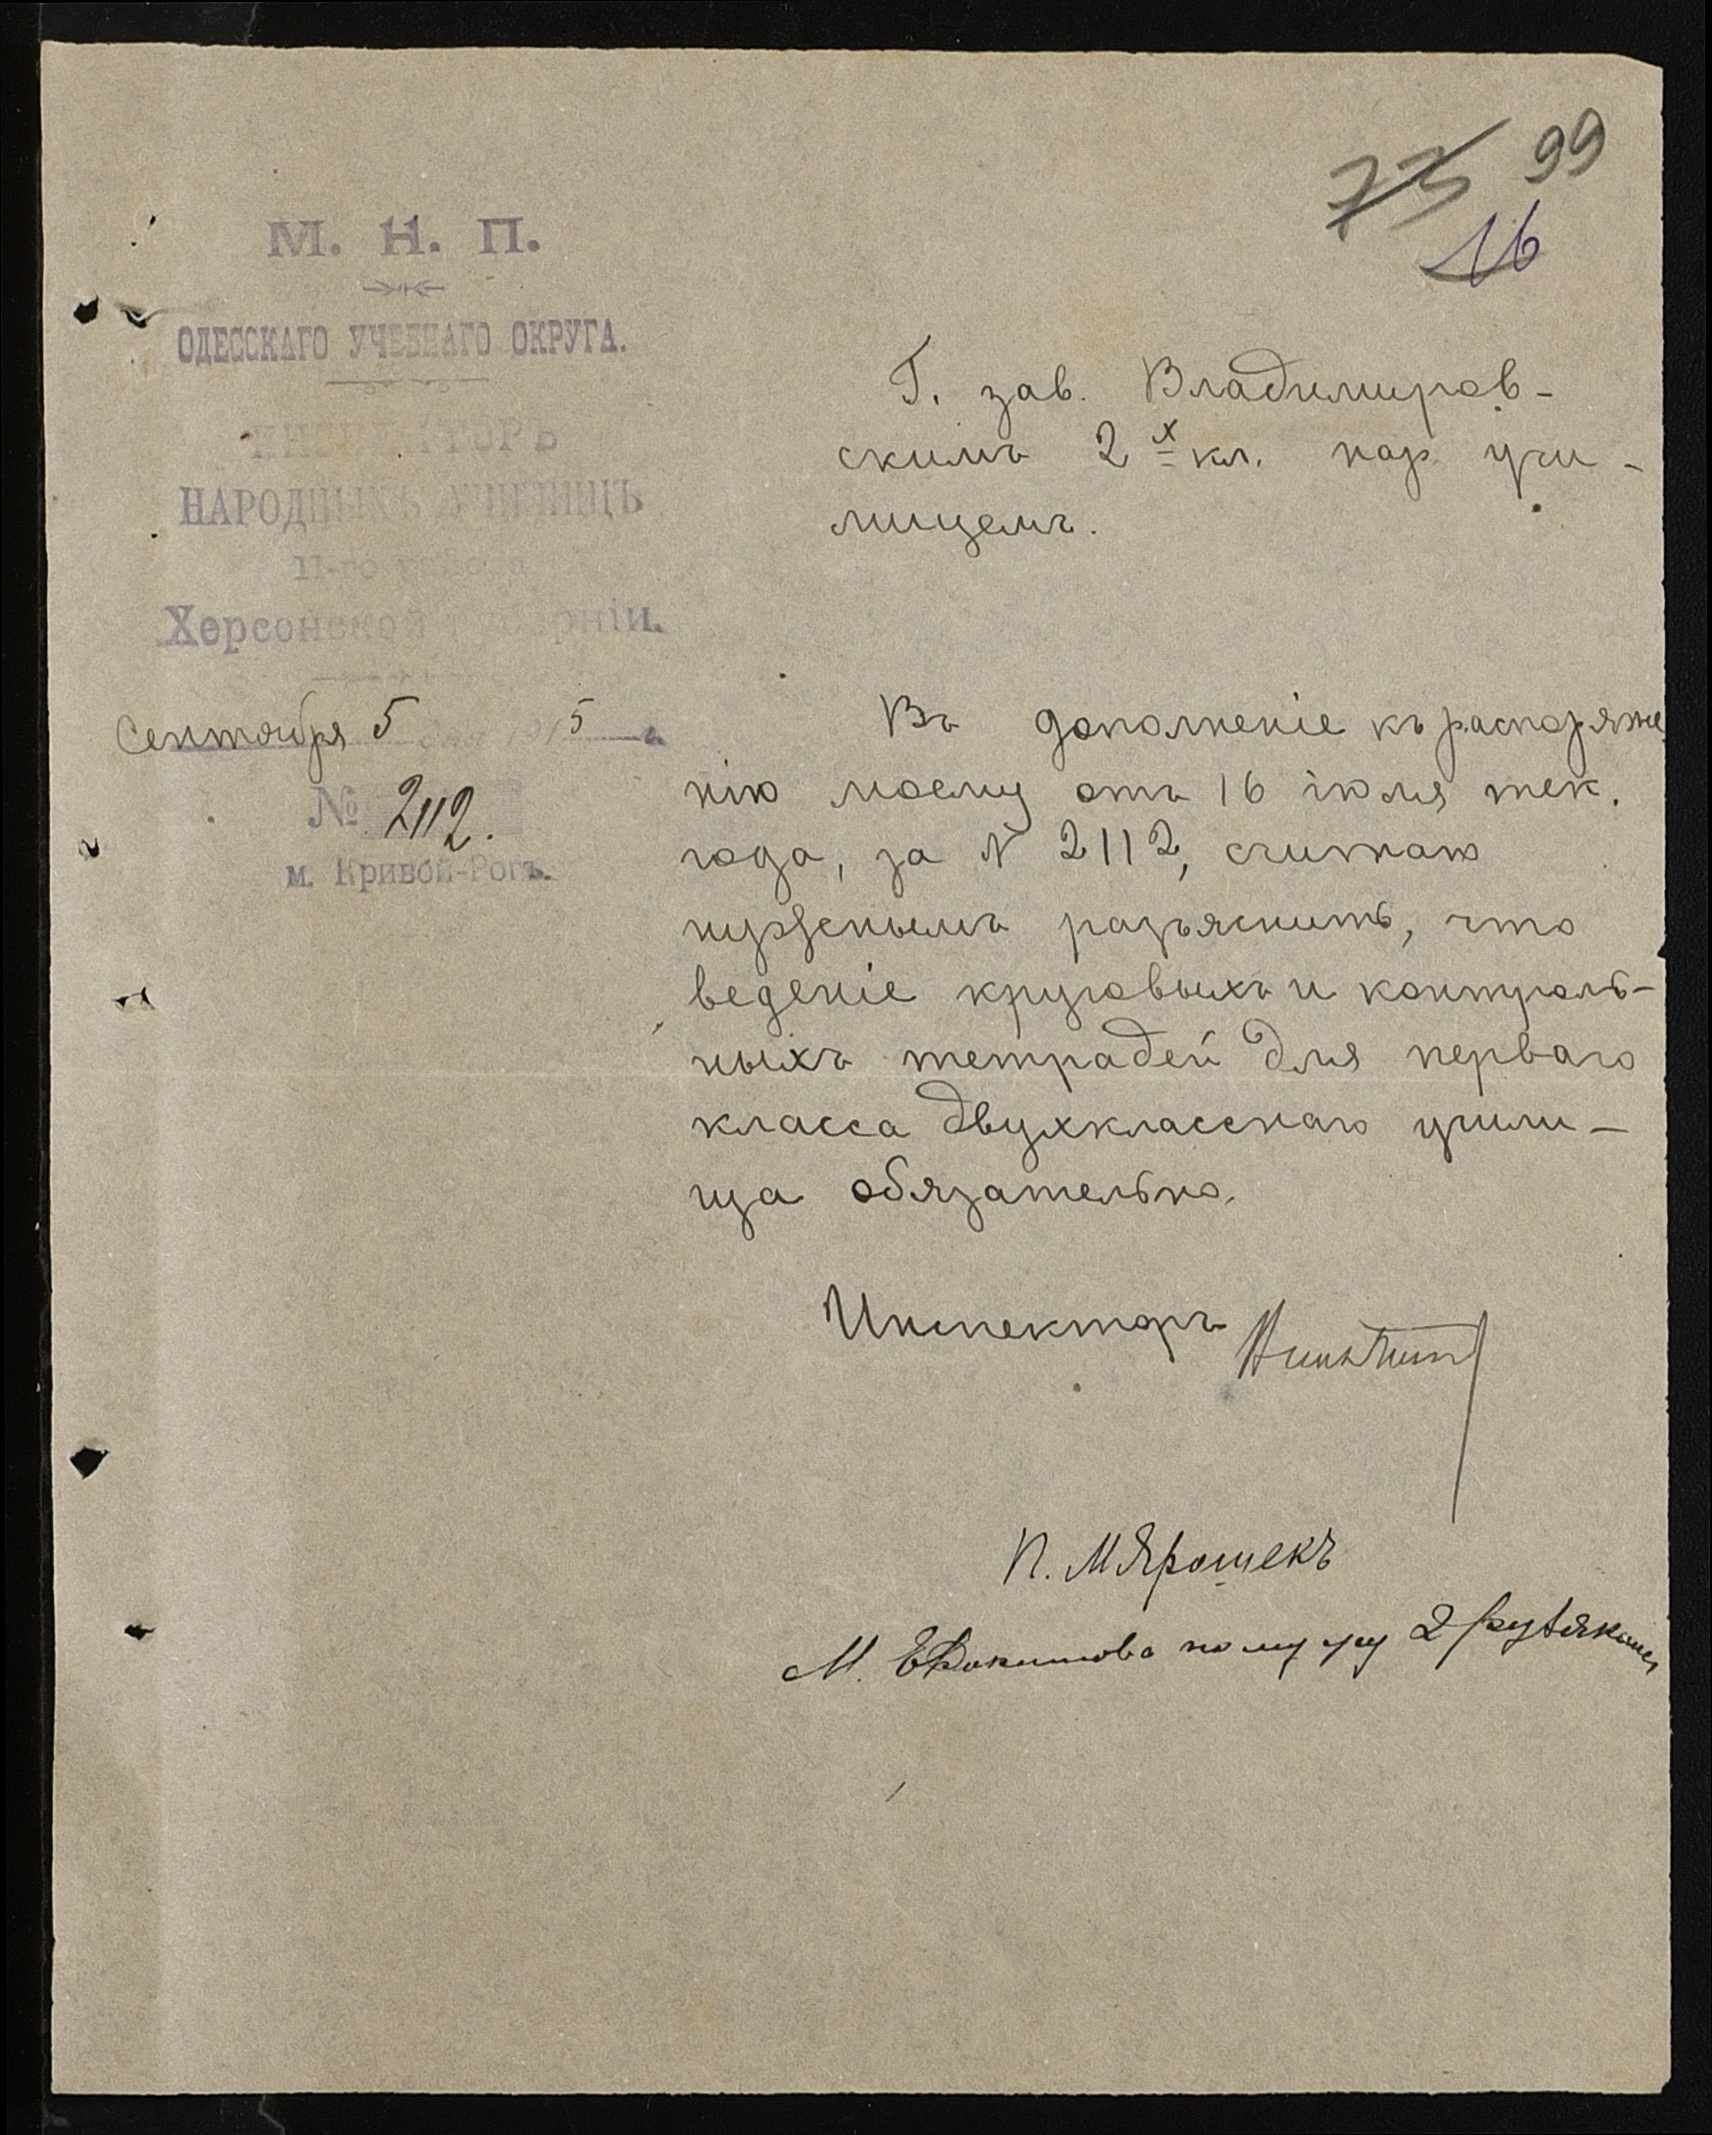 73 99
16
М. Н. П.
ОДЕССКАГО УЧЕБНАГО ОКРУГА.
ИНСПЕКТОРЪ
НАРОДНЫХЪ УЧИЛИЩЪ
11-го района
Херсонской губерніи.
Сентября 5 дня 1915 г.
№ 2112.
м. Кривой-Рогъ.
Г. зав. Владимиров-
скимъ 2х кл. нар. учи-
лищемъ.
Въ дополненіе къ распоряже
нію моему отъ 16 іюля тек.
года, за № 2112, считаю
нужнымъ разъяснить, что
веденіе круговыхъ и контроль-
ныхъ тетрадей для перваго
класса двухкласснаго учили-
ща обязательно.
Инспекторъ
П. М Ярошекъ
М. Евдокимова